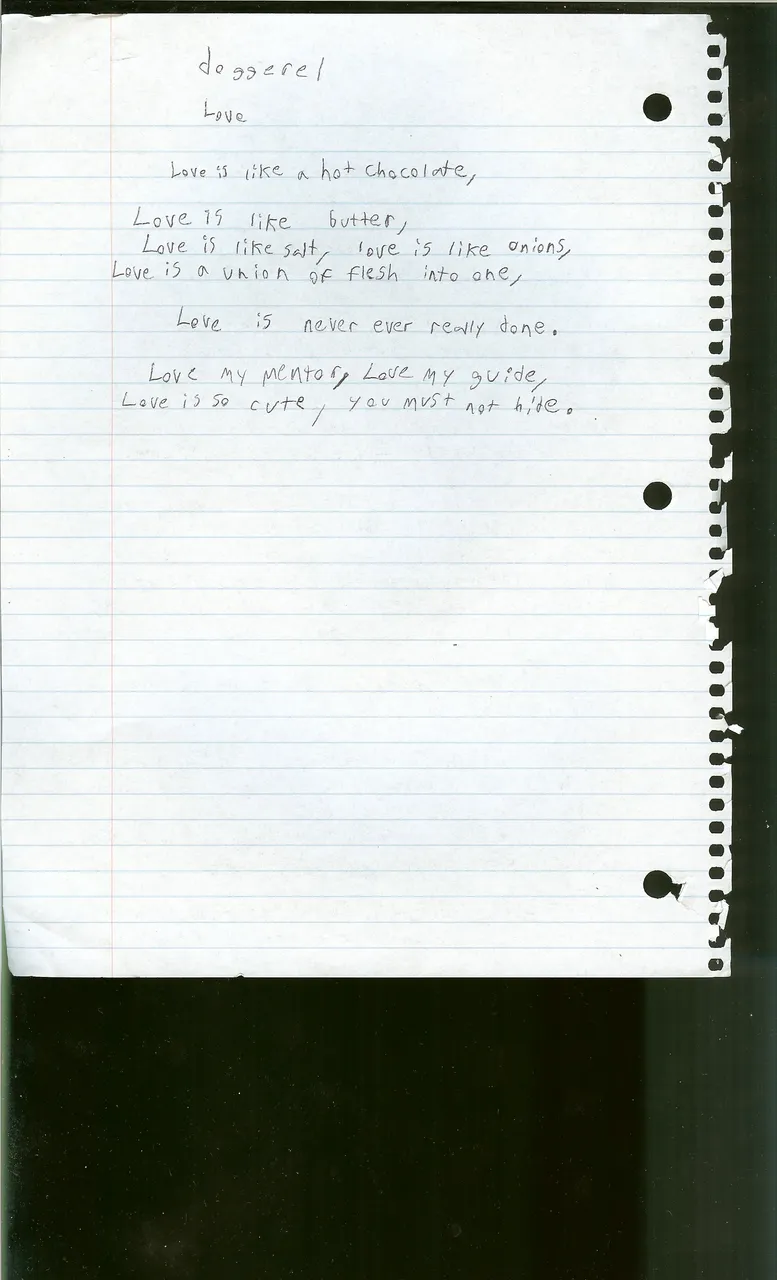 doggerel
Love
Love is like a hot chocolate,
Love is like butter,
Love is like salt, love is like onions,
Love is a union of flesh into one,
Love is never ever really done.
Love my mentor, Love my guide,
Love is so cute, you must not hide.